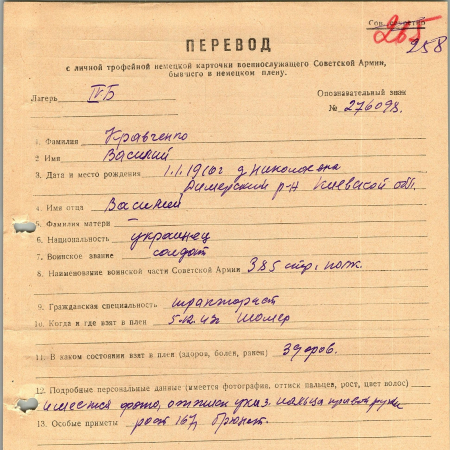 Сов. секретно
265
258
ПЕРЕВОД
с личной трофейной немецкой карточки военнослужащего Советской Армии,
бывшего в немецком плену.
Лагерь IV Б
Опознавательный знак
№ 276098.
1. Фамилия Кравченко
2 Имя Василий
3. Дата и место рождения 1.1.1910г д. Николаевка
р-н Киевской обл.
4. Имя отца Василий
5. Фамилия матери —
6. Национальность украинец
7. Воинское звание солдат
8. Наименование воинской части Советской Армии 385 стр. полк.
9. Гражданская специальность
10. Когда и где взят в плен 5.12.42
11. В каком состоянии взят в плен (здоров, болен, ранен) здоров.
12. Подробные персональные данные (имеется фотография, оттиск пальцев, рост, цвет волос)
имеется фото, оттиск указ. пальца правой руки
13. Особые приметы рост 167, брюнет.